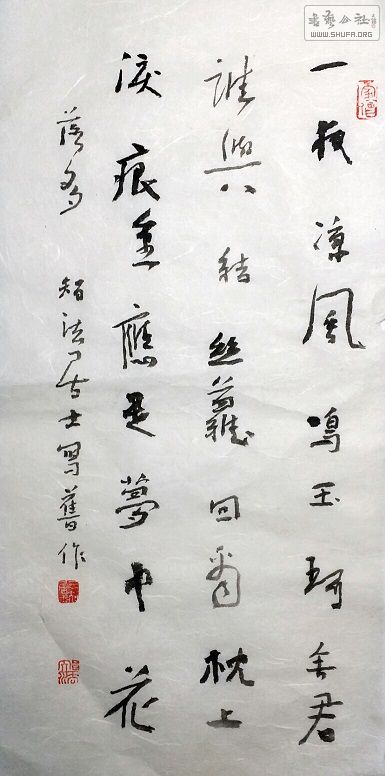 書藝公社
WWW.SHUFA.ORG
一夜凉風鳴玉珂無君
誰與結絲蘿回看枕上
淚痕盡應是夢中花
落多 智法居士寫舊作